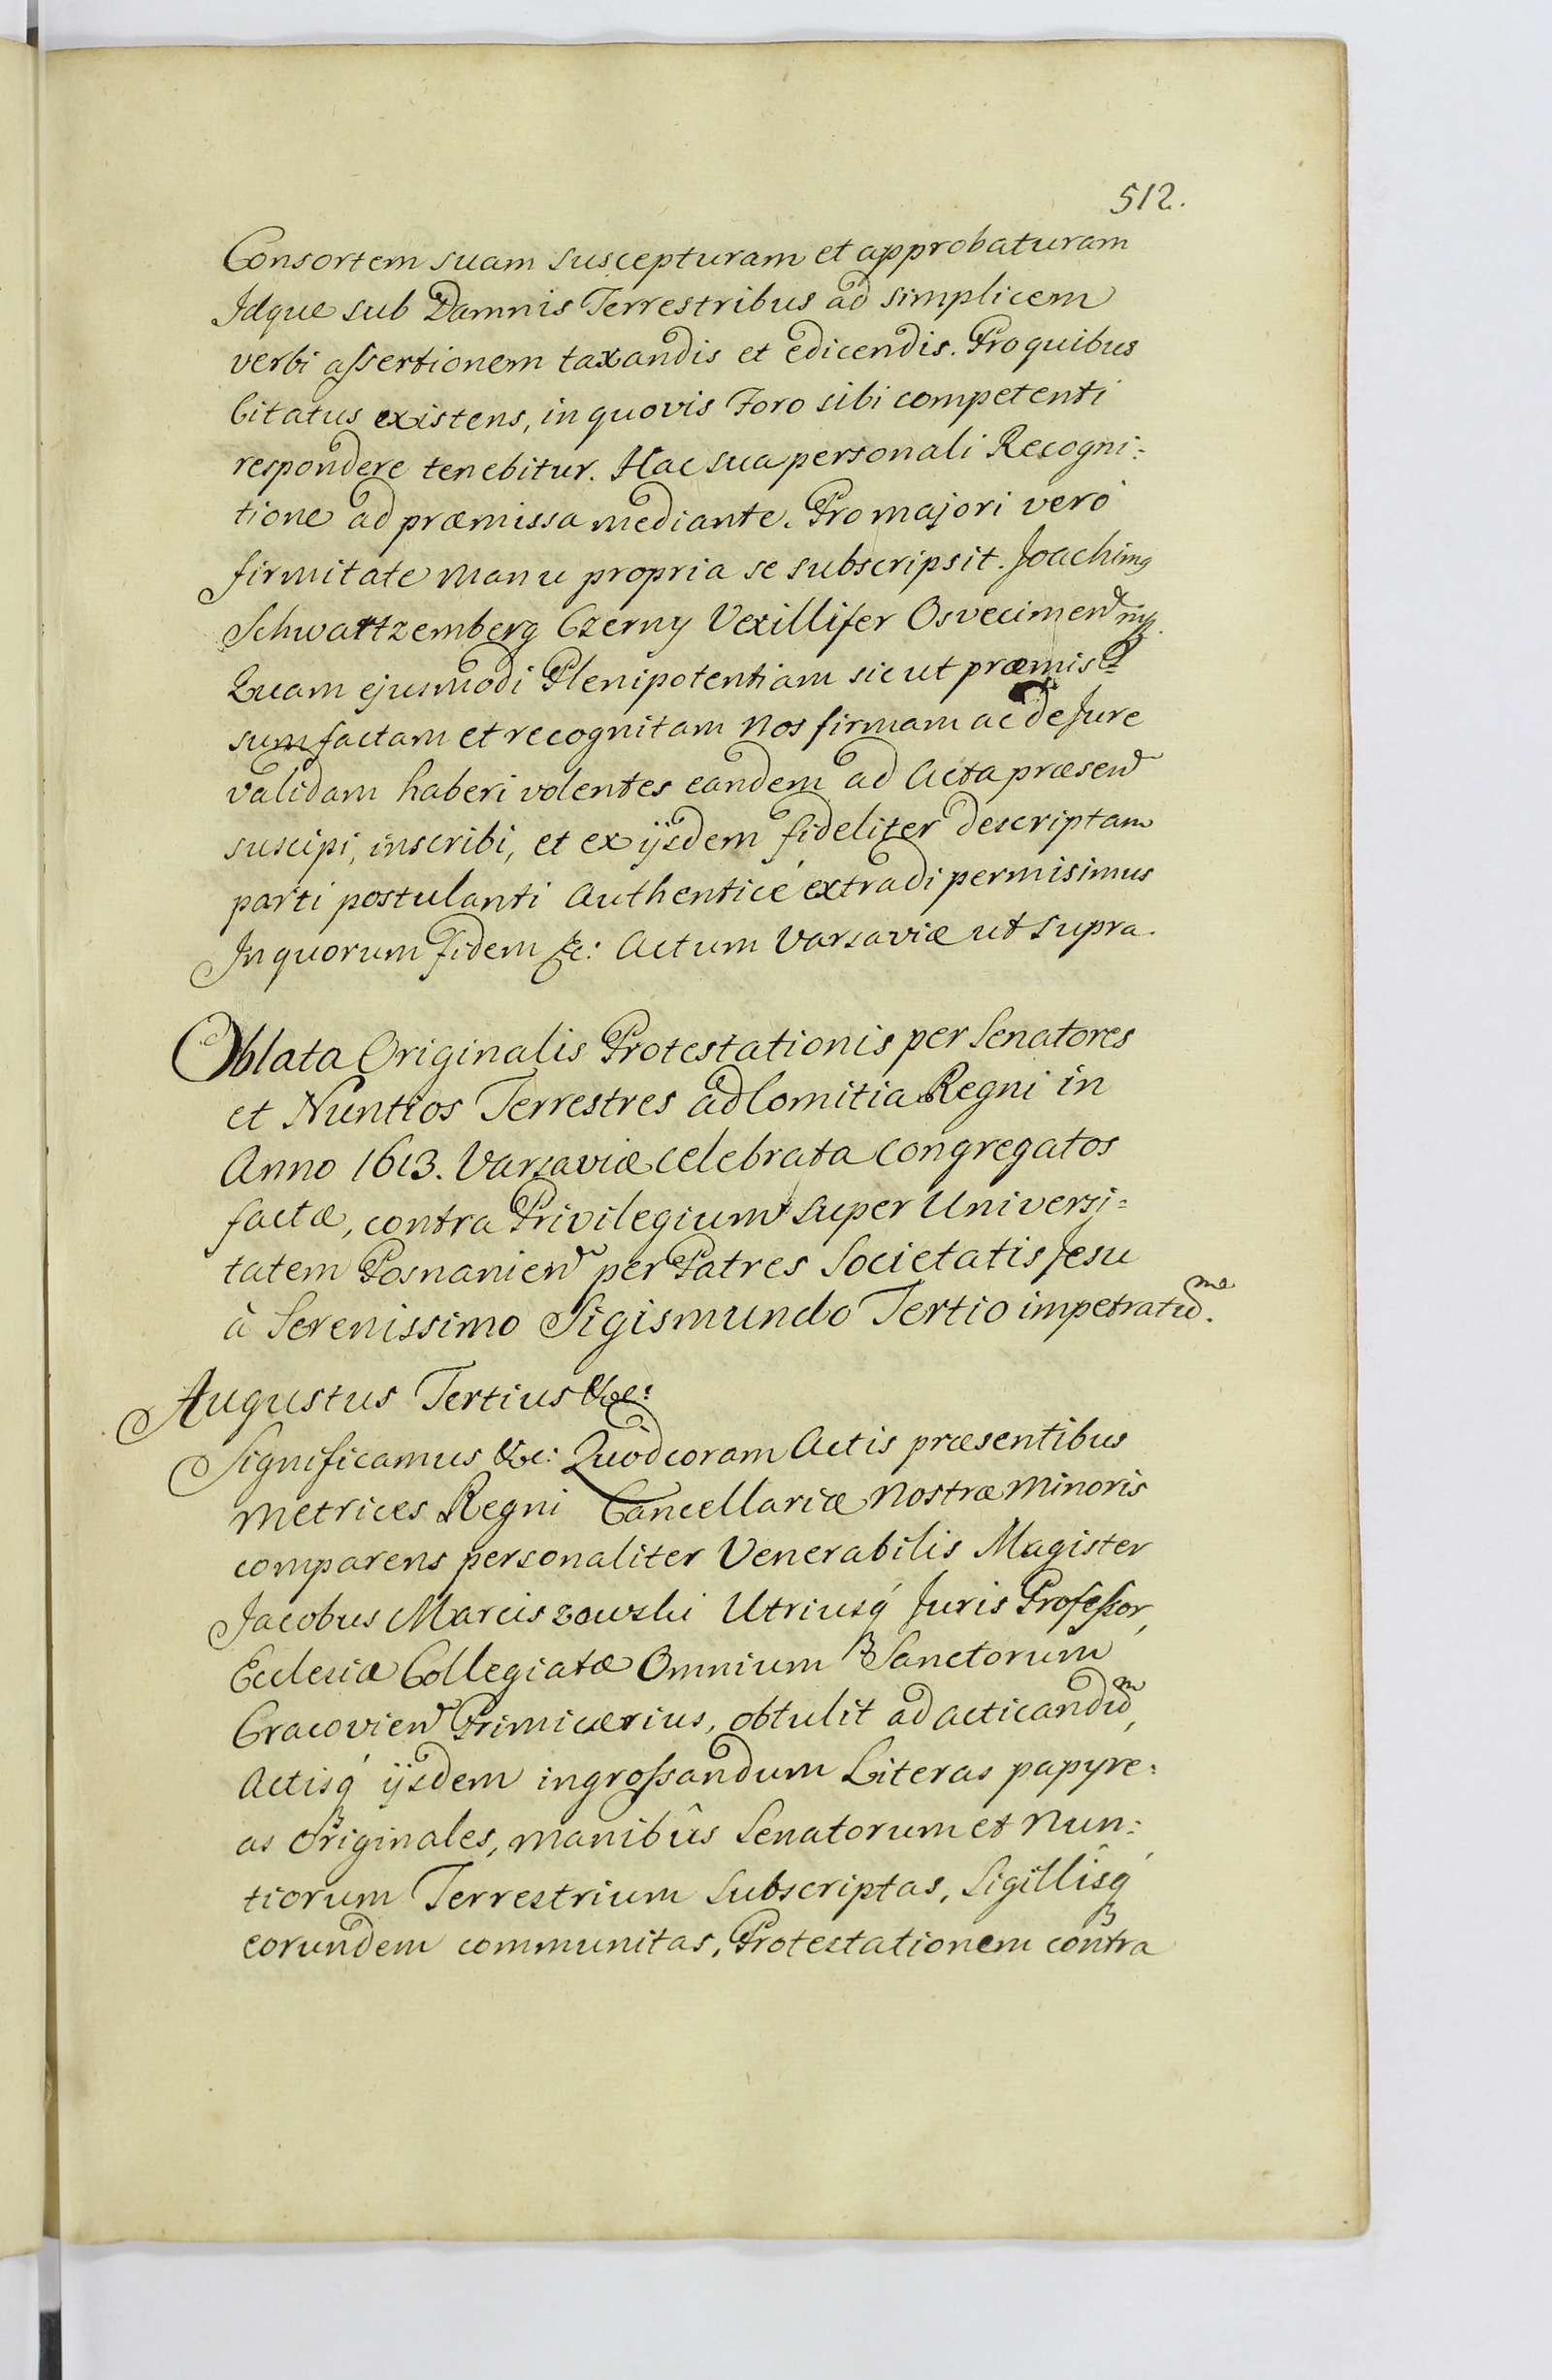 512.
Consortem suam suscepturam et approbaturam
Idque sub Damnis Terrestribus ad simplicem
verbi assertionem taxandis et edicendis. Pro quibus
Citatus existens, in quovis Foro sibi competenti
respondere tenebitur. Hac sua personali Recogni:
tione ad præmissa mediante. Pro majori verò
firmitate manu propria se subscripsit. Joachimg
Schwartzemberg Czerny Vexillifer Osvecimen
Quam ejusmodi Plenipotentiam sicut præmis=
sum factam et recognitam Nos firmam ac de Jure
validam haberi volentes eandem ad Acta præsen
suscipi, inscribi, et ex ijsdem fideliter descriptam
parti postulanti Authenticè extradi permisimus
In quorum fidem &c: Actum Varsaviæ ut supra.
Oblata Originalis Protestationis per Senatores
et Nuntios Terrestres ad Comitia Regni in
Anno 1613. Varsaviæ celebrata congregatos
factæ, contra Privilegium super Universi=
tatem Posnanien per Patres Societatis Jesu
à Serenissimo Sigismundo Tertio impetratū.
Augustus Tertius &c:
Significamus &c: Quod coram Actis præsentibus
Metrices Regni Cancellariæ Nostræ Minoris
comparens personaliter Venerabilis Magister
Jacobus Marciszowski Utriusq́ Juris Professor,
Ecclesiæ Collegiatæ Omnium Sanctorum
Cracovien Primicærius, obtulit ad acticandū,
Actisq́ ijsdem ingrossandum Literas papyre:
as Originales, manibûs Senatorum et Nun:
tiorum Terrestrium subscriptas, Sigillîsq́
eorundem communitas, Protestationem contra